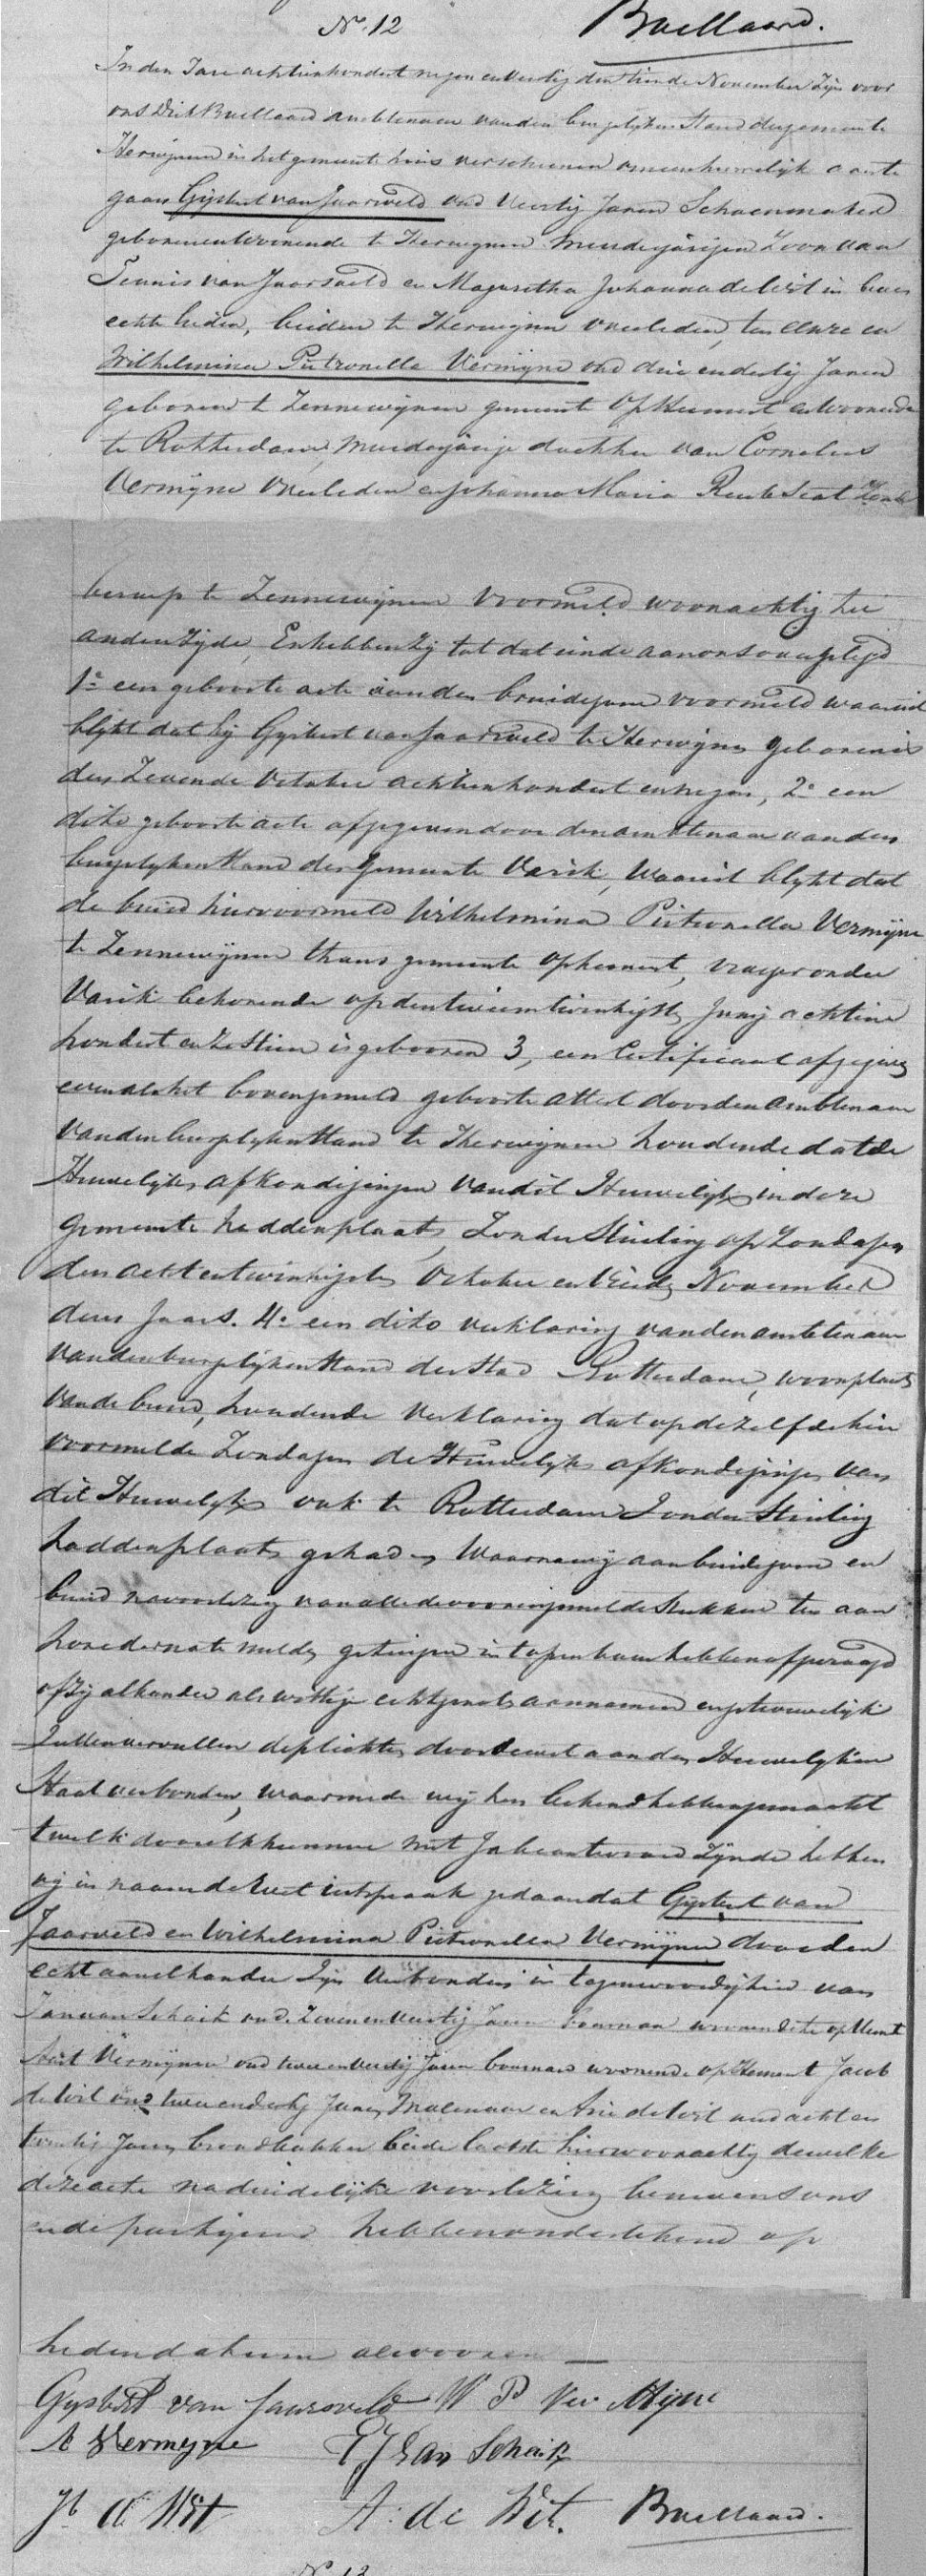 No. 12 Buellaard.
In den Jare achtienhonderd negen en veertig den tiende November Zijn voor
ons Dirk Buellaard ambtenaar van den burgelijken Stand der gemeente
Herwijnen in het gemeente huis verschenen om een huwelijk aan te
gaan Gijsbert van Jaarsveld oud Veertig Jaren Schoenmaker
geboren en woonende te Herwijnen meerderjarigen Zoon van
Teunis van Jaarsveld en Magaretha Johanna de Wit in leven
echte lieden, beiden te Herwijnen overleden, ter eenre en
Wilhelmina Pietronella Vermijne oud drie en dertig Jaren
geboren te Zennewijnen gemeente Ophemert en woonende
te Rotterdam, meerderjarige dochter van Cornelus
Vermijne overleden en Johanna Maria
beroep te Zennewijnen voormeld woonachtig ter
andere Zijde, En hebben Zij tot dat einde aan ons overgelegd
1e een geboorte acte van den bruidegom voormeld waaruit
blijkt dat hij Gijsbert van Jaarsveld te Herwijnen geboren is
den Zevende October achtienhonderd en negen, 2e een
dito geboorte acte afgegeven door den ambtenaar van den
burgelyken Stand der gemeente Varik, Waaruit blykt dat
de bruid hiervoormeld Wilhelmina Pietronella Vermijne
te Zennewijnen thans gemeente ophemert, vroeger onder
Varik behorende op den twee en twintigste Junij achtien
hondert en Zestien is gebooren 3, een Certificaat afgegeven
evenals het bovengemeld geboorte attest door den ambtenaar
van den burgelyken Stand te Herwijnen houdende dat de
Huwelijks afkondigingen van dit Huwelijk in deze
Gemeente hadden plaats, Zonder Stuiting op Zondagen
den acht en twintigste October en Vierde November
dezes Jaars. 4e een dito verklaring van den ambtenaar
van den burgelijken Stand der Stad Rotterdam, woonplaats
van de bruid, houdende verklaring dat op dezelfde hier
voormelde Zondagen de Huwelijks afkondigingen van
dit Huwelijk ook te Rotterdam Zonder Stuiting
hadden plaats gehad, Waarna wij aan bruidegom en
bruid na voorlezing van alle de vooraengemelde stukken ten aan
horen der na te melden getuigen in t openbaar hebben afgevraagd
of Zij elkander als wettige echtgenoten aannamen en getrouwelijk
Zullen vervullen de plichten door de wet aan den Huwelyken
Staat verbonden, waarmede wij hen bekend hebben gemaakt
t welk door elk hunner met Ja beantwoord Zijnde hebben
wij in naam de Wet uitspraak gedaan dat Gijsbert van
Jaarsveld en Wilhelmina Pietronella Vermijne door den
echt aan elkander Zijn Verbonden in tegenwoordigheid van
Jan van Schaik oud Zeven en veertig Jaren bouman woonende te op Hemert
Aart Vermijnen oud twee en veertig Jaren bouman woonende ophemert Jacob
de Wit oud twee en dertig Jaren Molenaar en Arie de Wit oud acht en
twintig Jaren broodbakker beide laatste hier woonachtig dewelke
deze acte na duidelijke voorlezing benevens ons
en de partijen hebben onderteekend op
heden datum alsvooren
Gysbert van Jaarsveld W P Ver Mijne
A Vermyne van Schaik
Jb d Wit A: de Wit. Buellaard.